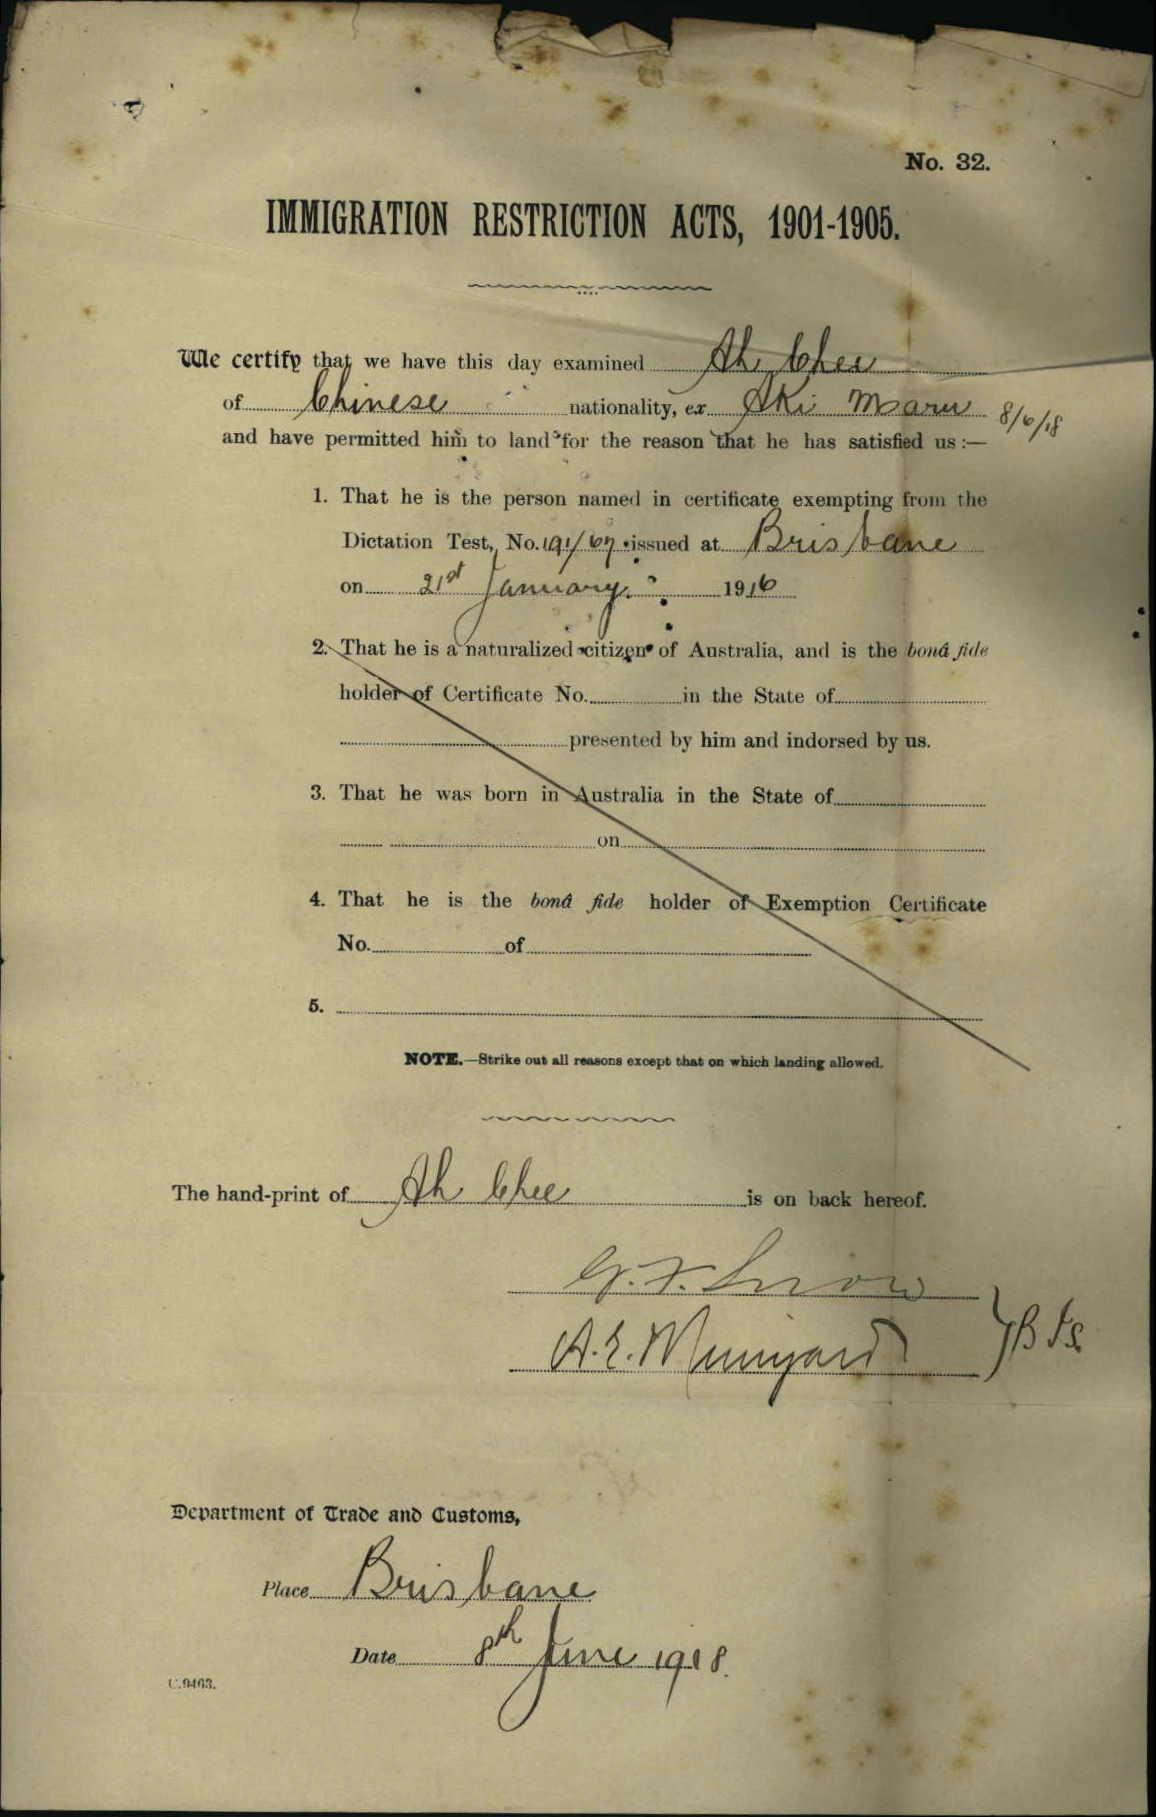 No. 32.
IMMIGRATION RESTRICTION ACTS, 1901-1905.
We certify that we have this day examined Ah Chee
of Chinese nationality, ex Aki Maru 8/6/18
and have permitted him to land for the reason that he has satisfied us :—
1. That he is the person named in certificate exempting from the
Dictation Test, No. 191/67 issued at Brisbane
on 21st January 1916
2. That he is a naturalized citizen of Australia, and is the bonâ fide
holder of Certificate No. in the State of
presented by him and indorsed by us.
3. That he was born in Australia in the State of
on
4. That he is the bonâ fide holder of Exemption Certificate
No. of
5.
NOTE.—Strike out all reasons except that on which landing allowed.
The hand-print of Ah Chee is on back hereof.
G. F. Snow
A. E. Munyard
Department of Trade and Customs,
Place Brisbane
Date 8th June 1918.
C.9463.